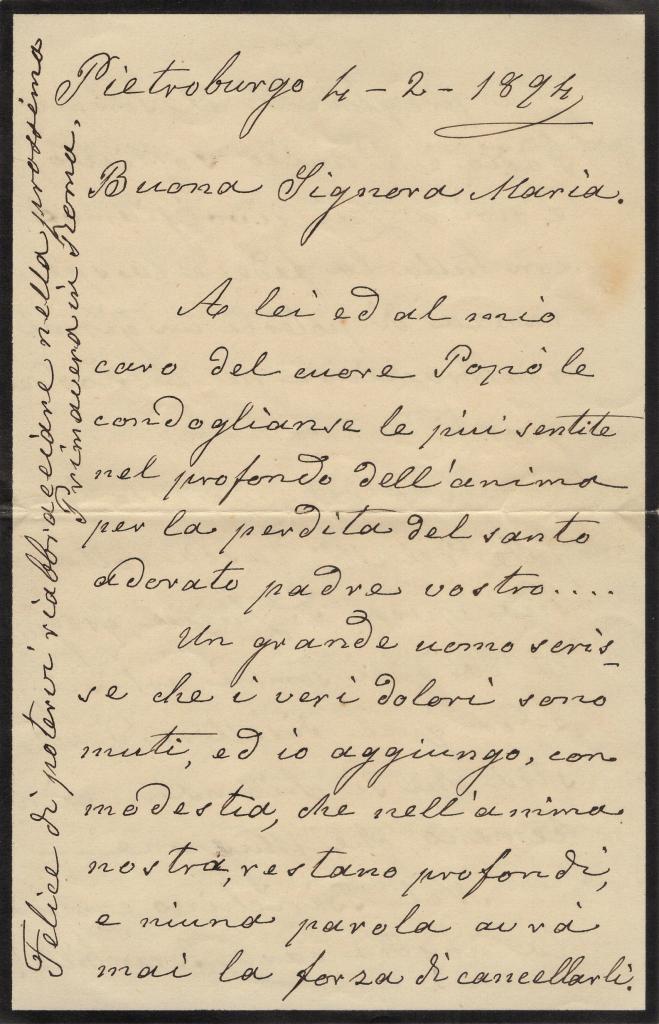 Pietroburgo 4-2-1894
Buona Signora Maria.
A lei ed al mio
caro del cuore Popò le
condoglianse le più sentite
nel profondo dell'anima
per la perdita del santo
adorato padre vostro....
Un grande uomo scris-
se che i veri dolori sono
muti, ed io aggiungo, con
modestia, che nell'anima
nostra, restano profondi,
e niuna parola avrà
mai la forza di cancellarli.
Felice di potervi riabbracciare nella prossima
Primavera in Roma.